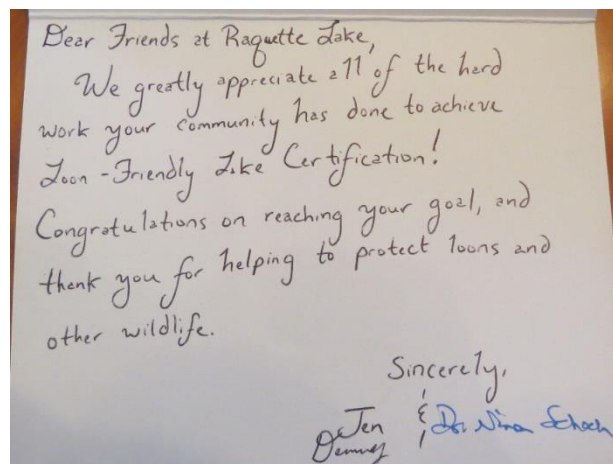 Dear Friends at Raquette Lake,
We greatly appreciate all of the hard
work your community has done to achieve
Loon-Friendly Lake Certification!
Congratulations on reaching your goal, and
thank you for helping to protect loons and
other wildlife.
Sincerely,
Jen & Dr. Nina Schoch